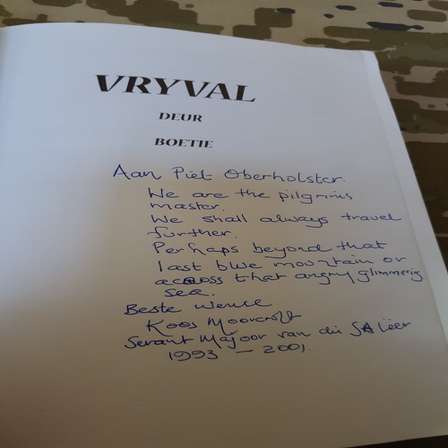 VRYVAL
DEUR
BOETIE
Aan Piet Oberholster.
We are the pilgrims
master.
We shall always travel
further.
Perhaps beyond that
last blue mountain or
across that angry glimmering
sea.
Beste wense
Koos Moorcroft
Sersant Majoor van die SA Leër
1993 – 2001